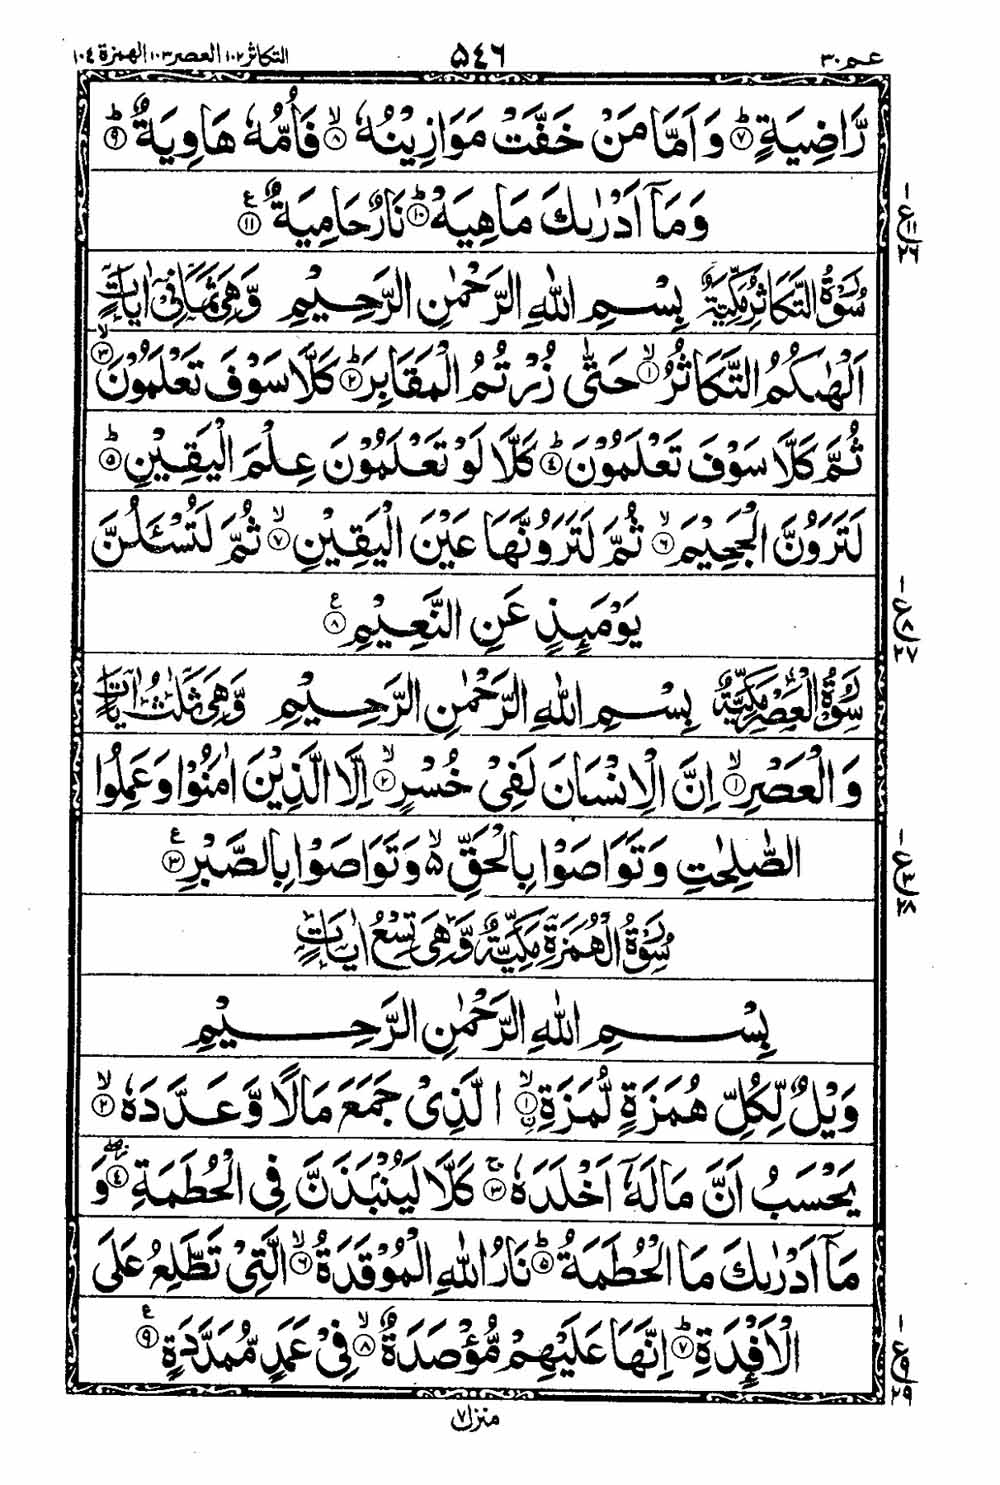 عم ٣٠ ٥٤٦ التكاثر ١٠٢ العصر ١٠٣ الهمزة ١٠٤
رَّاضِيَةٍ ؕ﴿٧﴾ وَ اَمَّا مَنْ خَفَّتْ مَوَازِيْنُهٗ ۙ﴿٨﴾ فَاُمُّهٗ هَاوِيَةٌ ؕ﴿٩﴾
وَمَاۤ اَدْرٰىكَ مَاهِيَهْ ؕ﴿١٠﴾ نَارٌ حَامِيَةٌ ﴿١١﴾ ع
سُوْرَةُ التَّكَاثُرِ مَكِّيَّةٌ بِسْمِ اللّٰهِ الرَّحْمٰنِ الرَّحِيْمِ وَّهِيَ ثَمَانِيْ اٰيَاتٍ
اَلْهٰىكُمُ التَّكَاثُرُ ۙ﴿١﴾ حَتّٰى زُرْتُمُ الْمَقَابِرَ ؕ﴿٢﴾ كَلَّا سَوْفَ تَعْلَمُوْنَ ۙ﴿٣﴾
ثُمَّ كَلَّا سَوْفَ تَعْلَمُوْنَ ؕ﴿٤﴾ كَلَّا لَوْ تَعْلَمُوْنَ عِلْمَ الْيَقِيْنِ ؕ﴿٥﴾
لَتَرَوُنَّ الْجَحِيْمَ ۙ﴿٦﴾ ثُمَّ لَتَرَوُنَّهَا عَيْنَ الْيَقِيْنِ ۙ﴿٧﴾ ثُمَّ لَتُسْـَٔلُنَّ
يَوْمَىِٕذٍ عَنِ النَّعِيْمِ ﴿٨﴾ ع
سُوْرَةُ الْعَصْرِ مَكِّيَّةٌ بِسْمِ اللّٰهِ الرَّحْمٰنِ الرَّحِيْمِ وَّهِيَ ثَلٰثُ اٰيَاتٍ
وَ الْعَصْرِ ۙ﴿١﴾ اِنَّ الْاِنْسَانَ لَفِيْ خُسْرٍ ۙ﴿٢﴾ اِلَّا الَّذِيْنَ اٰمَنُوْا وَعَمِلُوا
الصّٰلِحٰتِ وَتَوَاصَوْا بِالْحَقِّ ۙ۬ وَتَوَاصَوْا بِالصَّبْرِ ﴿٣﴾ ع
سُوْرَةُ الْهُمَزَةِ مَكِّيَّةٌ وَّهِيَ تِسْعُ اٰيَاتٍ
بِسْمِ اللّٰهِ الرَّحْمٰنِ الرَّحِيْمِ
وَيْلٌ لِّكُلِّ هُمَزَةٍ لُّمَزَةِ ۙ﴿١﴾ ن الَّذِيْ جَمَعَ مَالًا وَّعَدَّدَهٗ ۙ﴿٢﴾
يَحْسَبُ اَنَّ مَالَهٗۤ اَخْلَدَهٗ ۚ﴿٣﴾ كَلَّا لَيُنْۢبَذَنَّ فِي الْحُطَمَةِ ؗۖ﴿٤﴾ وَ
مَاۤ اَدْرٰىكَ مَا الْحُطَمَةُ ؕ﴿٥﴾ نَارُ اللّٰهِ الْمُوْقَدَةُ ۙ﴿٦﴾ الَّتِيْ تَطَّلِعُ عَلَى
الْاَفْـِٕدَةِ ؕ﴿٧﴾ اِنَّهَا عَلَيْهِمْ مُّؤْصَدَةٌ ۙ﴿٨﴾ فِيْ عَمَدٍ مُّمَدَّدَةٍ ﴿٩﴾ ع
ع ١١ ٢٦
ع ٨ ٢٧
ع ٣ ٢٨
ع ٩ ٢٩
منزل ٧